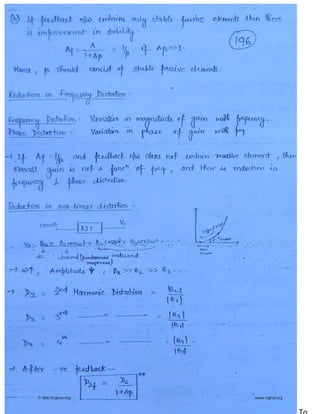 (b) If feedback n/w contains only stable passive elements then there
is improvement in stability
196
Af = A / 1+Aβ = 1/β if Aβ>>1.
Hence, β should consist of stable passive elements.
Reduction in Frequency Distortion :-
Frequency Distortion :- Variation in magnitude of gain with frequency.
Phase Distortion :- Variation in phase of gain with freq.
→ If Af = 1/β and feedback n/w does not contain reactive element, then
overall gain is not a funcⁿ of freq, and there is reduction in
frequency & phase distortion.
Reduction in non-linear distortion :-
cosωt
BJT
V₀
V₀ = B₀ + B₁ cosωt + B₂ cos2ωt + B₃ cos3ωt + - - -
dc
→ ω↑, Amplitude ↓, B₁ >> B₂ >> B₃ - - -
→ D₂ = 2nd Harmonic Distortion = |B₂| / |B₁|
D₃ = 3rd = |B₃| / |B₁|
D₄ = 4th = |B₄| / |B₁|
→ After -ve feedback —
D₂f = D₂ / 1+Aβ
© Wiki Engineering
www.raghul.org
To